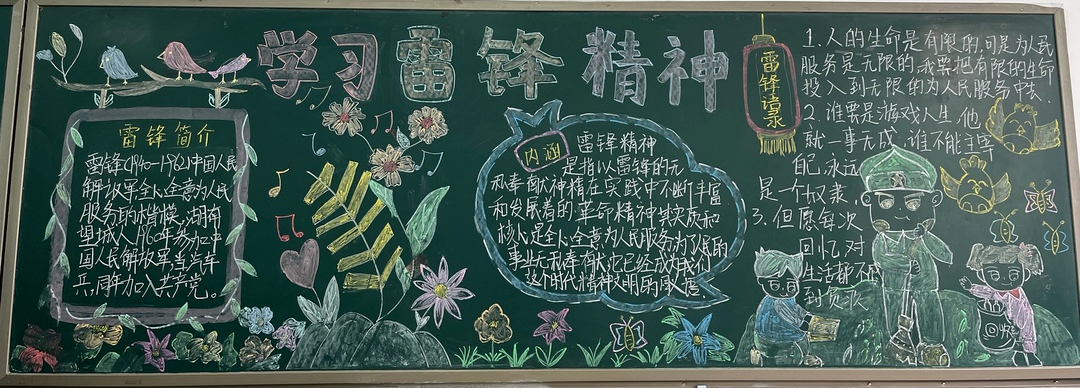 学习雷锋精神
雷锋简介
雷锋(1940-1962)中国人民
解放军全心全意为人民
服务的楷模,湖南
望城人,1960年参加中
国人民解放军,当年
兵,同年加入共产党。
内涵
雷锋精神
是指以雷锋的无
私奉献精神在实践中不断丰富
和发展着的革命精神其实质和
核心是全心全意为人民服务为了人民的
事业无私奉献它已经成为我们
这个时代精神文明的
雷锋语录
1.人的生命是有限的,可是为人民
服务是无限的,我要把有限的生命
投入到无限的为人民服务中去、
2、谁要是游戏人生,他
就一事无成,谁不能主宰
配,永远
是一个奴隶,
3.但愿每次
回忆,对
生活都不
到负疚